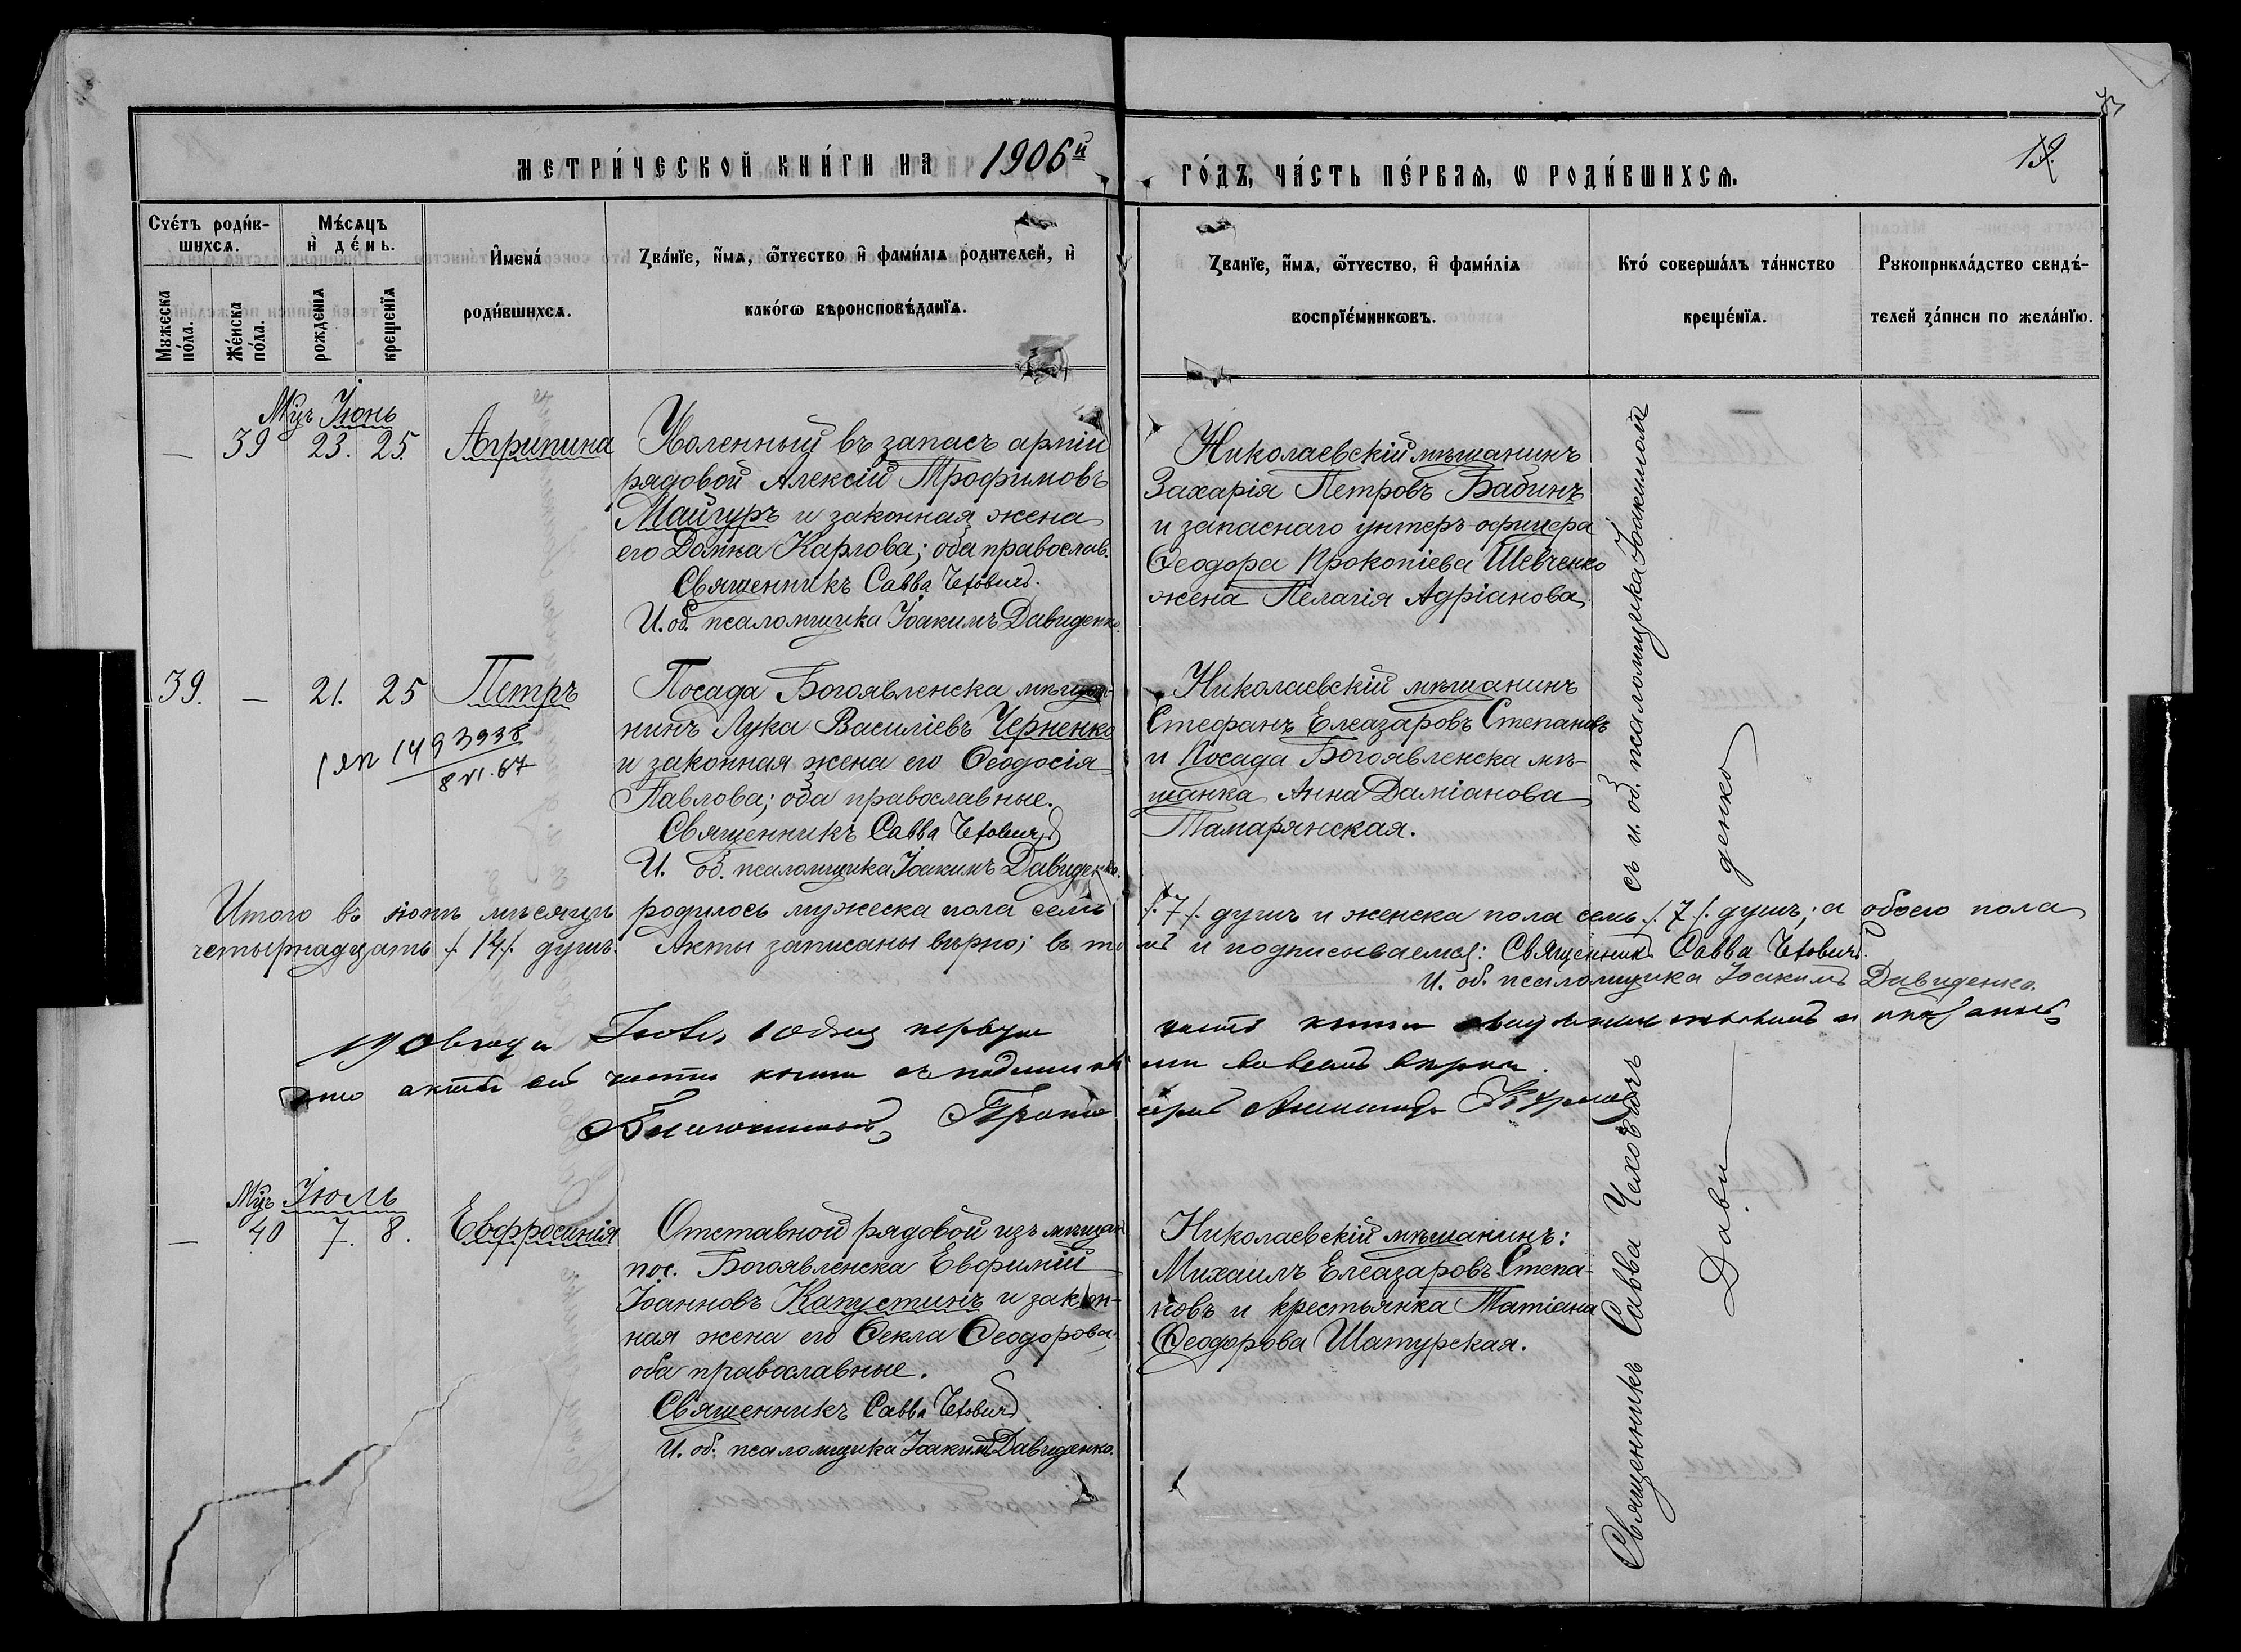 МЕТРИ́ЧЕСКОЙ КНИ́ГИ НА 1906й ГО́ДЪ, ЧА́СТЬ ПЕ́РВАѦ, Ѡ РОДИ́ВШИХСѦ.
Сче́тъ роди́в-
шихсѧ.
Мꙋжеска по́ла.
Же́нска по́ла.
Мѣ́сѧцъ
и҆ де́нь.
рожденїѧ
крещенїѧ
И҆мена́
роди́вшихсѧ.
Зва́нїе, и҆́мѧ, ѻ҆́тчество и҆ фами́лїѧ родителей, и҆
како́гѡ вѣроисповѣ́данїѧ.
Званїе, и҆́мѧ, ѻ҆́тчество, и҆ фами́лїѧ
воспрїе́мникѡвъ.
Кто́ соверша́лъ та́инство
креще́нїѧ.
Рꙋкоприкла́дство свидѣ́-
телей за́писи по жела́нїю.
Мцъ Іюнь
— 39 23. 25. Агрипина
Уволенный въ запасъ арміи
рядовой Алексій Трофимовъ
Майгуръ и законная жена
его Домна Карлова; оба православ.
Священникъ Савва Чеховичъ.
И. об. псаломщика Іоакимъ Давиденко.
Николаевскій мѣщанинъ
Захарія Петровъ Бабинъ
и запаснаго унтеръ-офицера
Ѳеодора Прокопіева Шевченко
жена Пелагія Адріанова.
39. — 21. 25 Петръ
149 3938
8 VI. 67
Посада Богоявленска мѣща-
нинъ Лука Василіевъ Черненко
и законная жена его Ѳеодосія
Павлова; оба православные.
Священникъ Савва Чеховичъ
И. об. псаломщика Іоакимъ Давиденко.
Николаевскій мѣщанинъ
Стефанъ Елеазаровъ Степановъ
и Посада Богоявленска мѣ-
щанка Анна Даміанова
Тамарянская.
Итого въ іюнѣ мѣсяцѣ родилось мужеска пола семь /.7/. душъ и женска пола семь /.7/. душъ; а обоего пола
четырнадцать /.14/. душъ. Акты записаны вѣрно; въ томъ и подписываемся: Священникъ Савва Чеховичъ.
И. об. псаломщика Іоакимъ Давиденко.
1906 года Іюля 10 дня первую часть книги
что акты сей части книги съ подлинными во всемъ вѣрны.
Благочинный, Протоіерей
Мцъ Іюль
— 40 7. 8. Евфросинія
Отставной рядовой изъ мѣщан
пос. Богоявленска Евфимій
Іоанновъ Капустинъ и закон-
ная жена его Ѳекла Ѳеодорова,
оба православные.
Священникъ Савва Чеховичъ
И. об. псаломщика Іоакимъ Давиденко.
Николаевскій мѣщанинъ:
Михаилъ Елеазаровъ Степа-
новъ и крестьянка Татіана
Ѳеодорова Шатурская.
Священникъ Савва Чеховичъ съ и. об. псаломщика Іоакимомъ
Давиденко